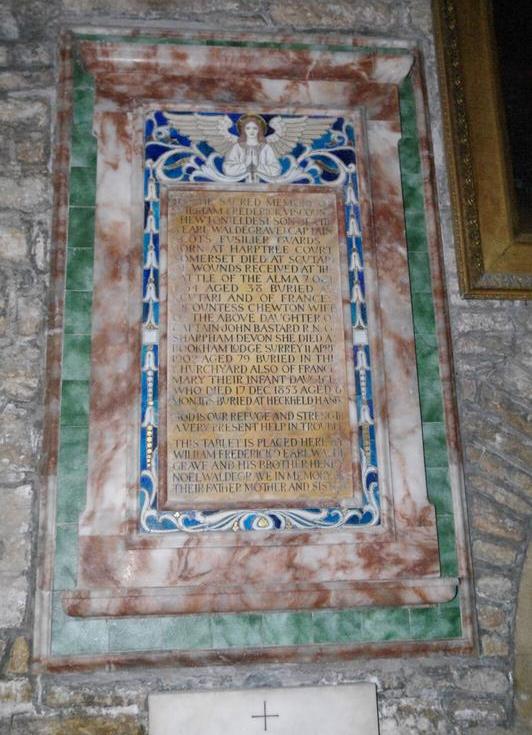 THE SACRED MEMORY
WILLIAM FREDERICK VISCOUNT
CHEWTON ELDEST SON OF
EARL WALDEGRAVE CAPTAIN
SCOTS FUSILIER GUARDS
BORN AT HARPTREE COURT
SOMERSET DIED AT SCUTARI
OF WOUNDS RECEIVED AT THE
BATTLE OF THE ALMA
AGED 38 BURIED
SCUTARI AND OF FRANCES
VISCOUNTESS CHEWTON WIFE
OF THE ABOVE DAUGHTER OF
CAPTAIN JOHN BASTARD R.N. OF
SHARPHAM DEVON SHE DIED AT
BOOKHAM LODGE SURREY 11 APRIL
1902 AGED 79 BURIED IN THE
CHURCHYARD ALSO OF FRANCES
MARY THEIR INFANT DAUGHTER
WHO DIED 17 DEC 1853 AGED
MONTHS BURIED AT HECKFIELD HANTS
GOD IS OUR REFUGE AND STRENGTH
A VERY PRESENT HELP IN TROUBLE
THIS TABLET IS PLACED HERE BY
WILLIAM FREDERICK 9 EARL WALDE
GRAVE AND HIS BROTHER HENRY
NOEL WALDEGRAVE IN MEMORY OF
THEIR FATHER MOTHER AND SISTER